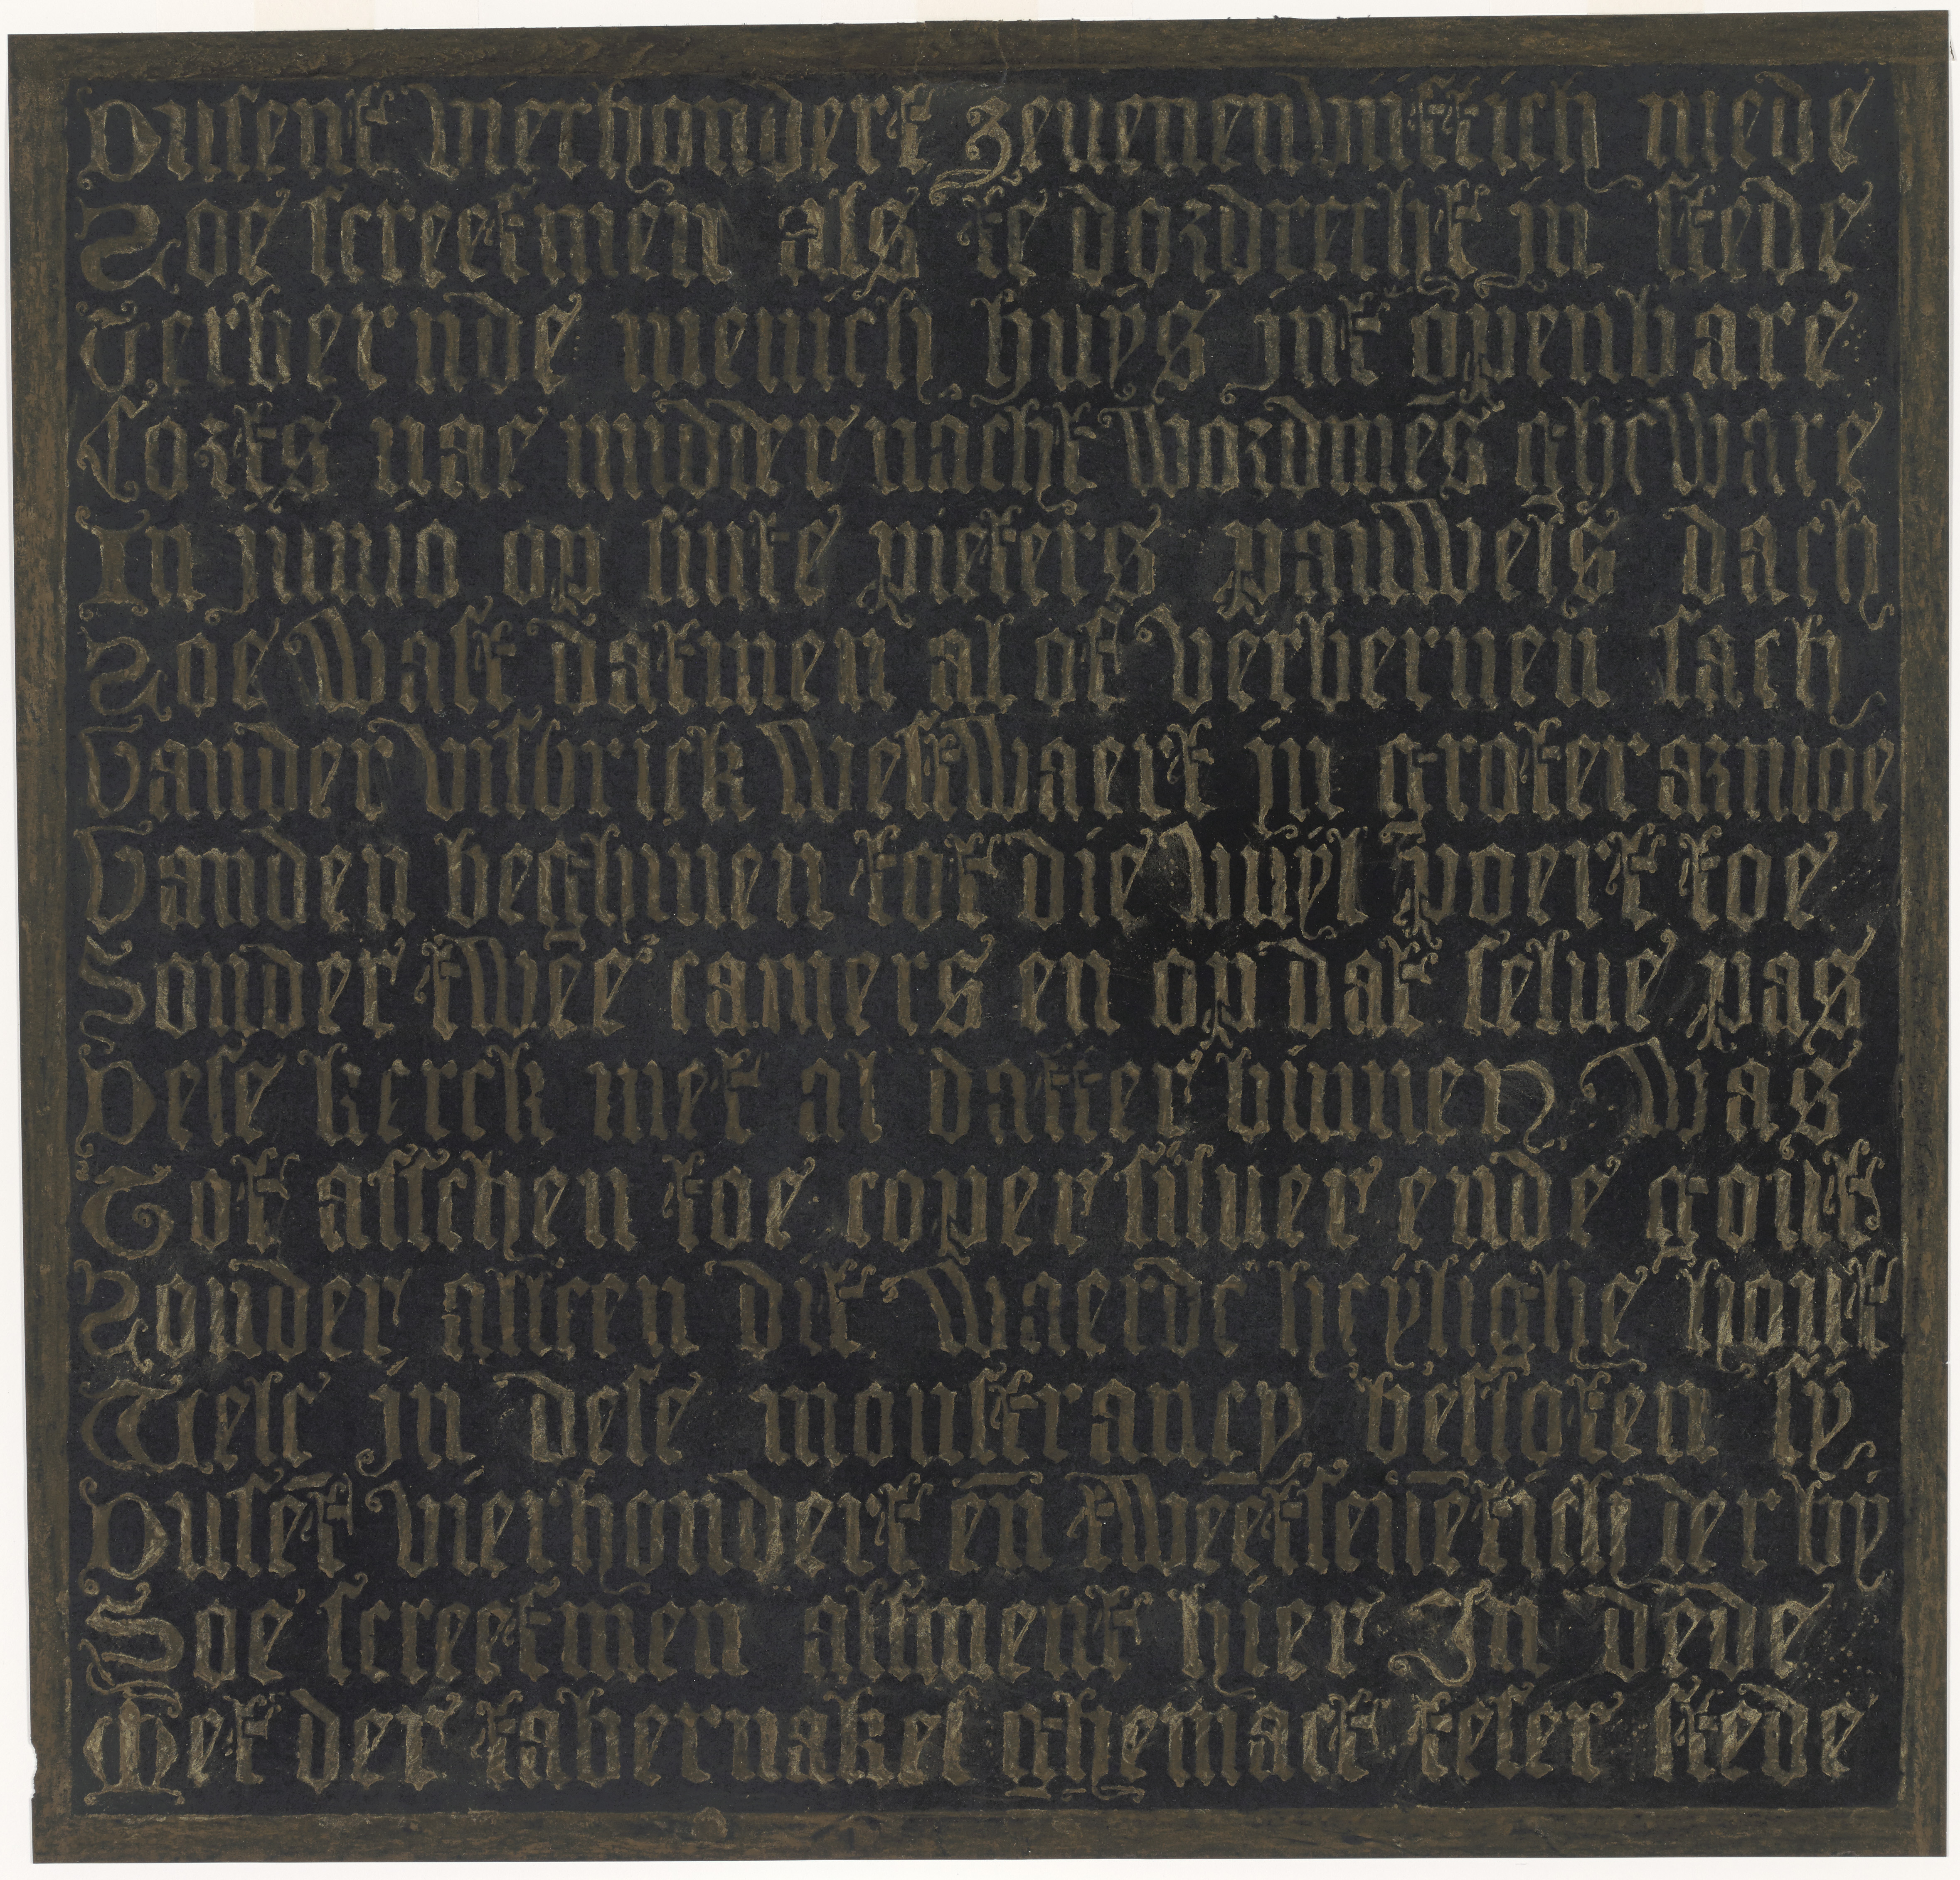 Dusent vierhondert zeuenenvijfftich mede
Soe screefmen als te dordrecht in stede
Verbernde menich huys int openbare
Corts nae midder nacht wordmēs gheware
In junio op sinte pieters pauwels dach
Soe wast datmen al of verbernen sach
Vander visbrick westwaert in groter armoe
Vanden beghinen tot die vuyl poert toe
Sonder twee camers en op dat selue pas
Dese kerck met al datter binnen was
Tot asschen toe coper siluer ende gout
Sonder alleen dit waerde heylighe hout
Welc in dese monstrancy besloten sy
Dusēt vierhondert eñ tweetseuētich der by
Soe screefmen alsment hier In dede
Met der tabernakel ghemact teser stede